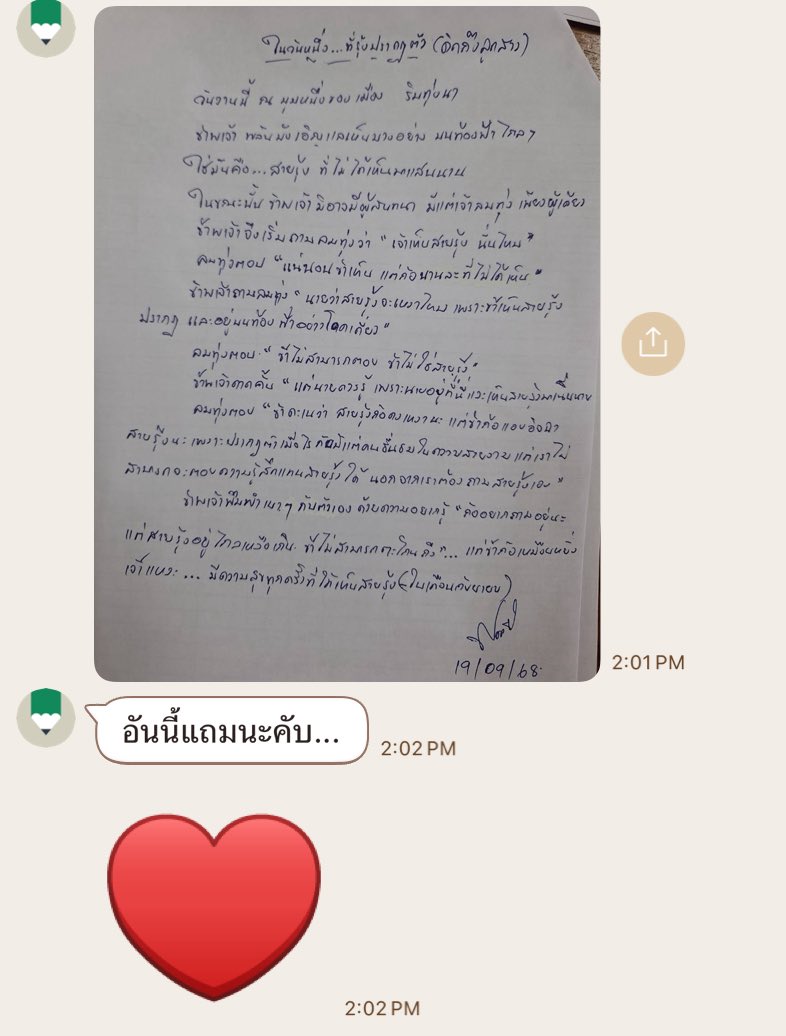 ในวันหนึ่ง...ที่รุ้งปรากฏตัว (คิดถึงลูกสาว)
วันวานนี้ ณ มุมหนึ่งของเมือง ริมทุ่งนา
ข้าพเจ้า พลันบังเอิญแลเห็นบางอย่าง บนท้องฟ้า ไกลๆ
ใช่มันคือ...สายรุ้ง ที่ไม่ได้เห็นมาแสนนาน
ในขณะนั้น ข้าพเจ้ามิอาจมีผู้สนทนา มีแต่เจ้าลมทุ่ง เพียงผู้เดียว
ข้าพเจ้าจึงเริ่มถามลมทุ่งว่า "เจ้าเห็นสายรุ้ง นั่นไหม"
ลมทุ่งตอบ "แน่นอนข้าเห็น แต่ก็นานละที่ไม่ได้เห็น"
ข้าพเจ้าถามลมทุ่ง "นายว่าสายรุ้งจะเหงาไหม เพราะข้าเห็นสายรุ้ง
ปรากฏ และอยู่บนท้องฟ้าอย่างโดดเดี่ยว"
ลมทุ่งตอบ "ข้าไม่สามารถตอบ ข้าไม่ใช่สายรุ้ง"
ข้าพเจ้าคาดคั้น "แต่นายควรรู้ เพราะนายอยู่ที่นี่และเห็นสายรุ้งมาเนิ่นนาน
ลมทุ่งตอบ "ข้าคะเนว่า สายรุ้งก็คงเหงานะ แต่ข้าก็แอบอิจฉา
สายรุ้งนะ เพราะปรากฏตัวเมื่อไร ก็มีแต่คนชื่นชมในความสวยงาม แต่เราไม่
สามารถจะตอบความรู้สึกแทนสายรุ้งได้ นอกจากเราต้องถามสายรุ้งเอง"
ข้าพเจ้าพึมพำเบาๆ กับตัวเอง ด้วยความอยากรู้ "ก็อยากถามอยู่นะ
แต่สายรุ้งอยู่ไกลเหลือเกิน ข้าไม่สามารถตะโกนถึง"... แต่ข้าก็เหมือนหยิ่ง
เจ้าแหละ... มีความสุขทุกครั้งที่ได้เห็นสายรุ้ง (ในเดือนกันยายน)
19/09/68
2:01 PM
อันนี้แถมนะคับ...
2:02 PM
2:02 PM